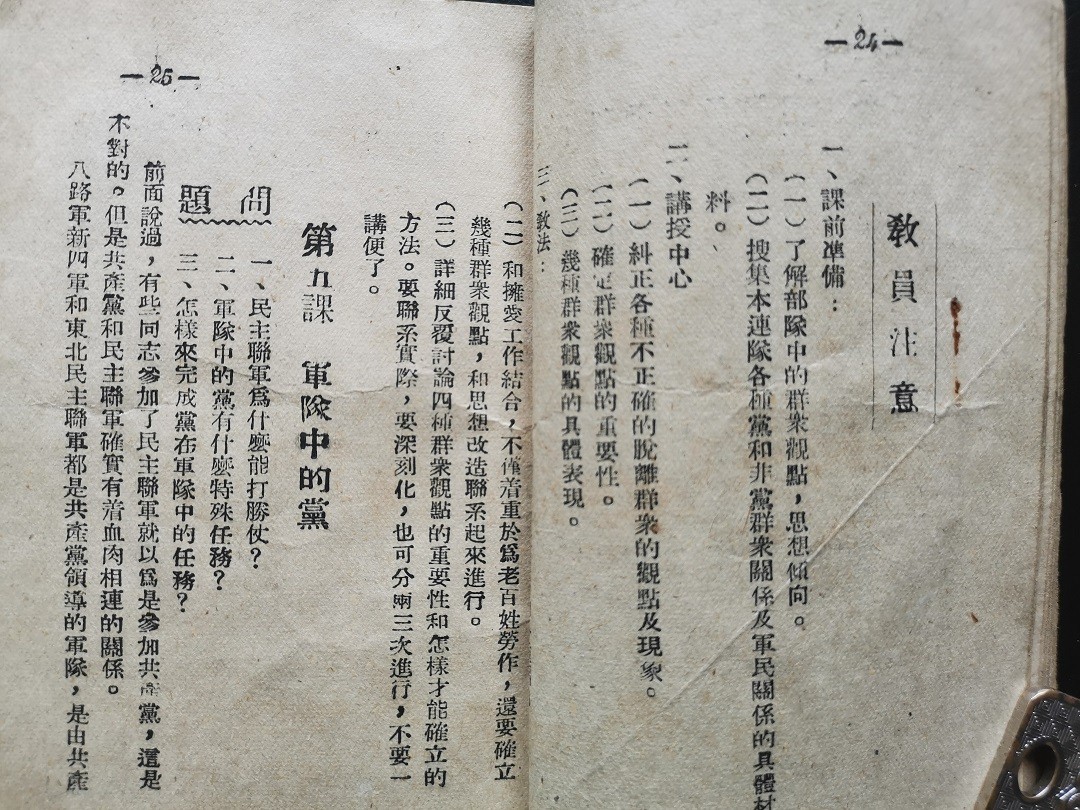 —24—
教員注意
一、課前準備：
（一）了解部隊中的群衆觀點，思想傾向。
（二）搜集本連隊各種黨和非黨群衆關係及軍民關係的具體材
料。
二、講授中心
（一）糾正各種不正確的脫離群衆的觀點及現象。
（二）確定群衆觀點的重要性。
（三）幾種群衆觀點的具體表現。
三、教法：
（二）和擁愛工作結合，不僅着重於爲老百姓勞作，還要確立
幾種群衆觀點，和思想改造聯系起來進行。
（三）詳細反覆討論四種群衆觀點的重要性和怎樣才能確立的
方法。要聯系實際，要深刻化，也可分兩三次進行，不要一
講便了。
—25—
第五課　軍隊中的黨
問題
一、民主聯軍爲什麼能打勝仗？
二、軍隊中的黨有什麼特殊任務？
三、怎樣來完成黨在軍隊中的任務？
前面說過，有些同志參加了民主聯軍就以爲是參加共產黨，這是
不對的。但是共產黨和民主聯軍確實有着血肉相連的關係。
八路軍新四軍和東北民主聯軍都是共產黨領導的軍隊，是由共產